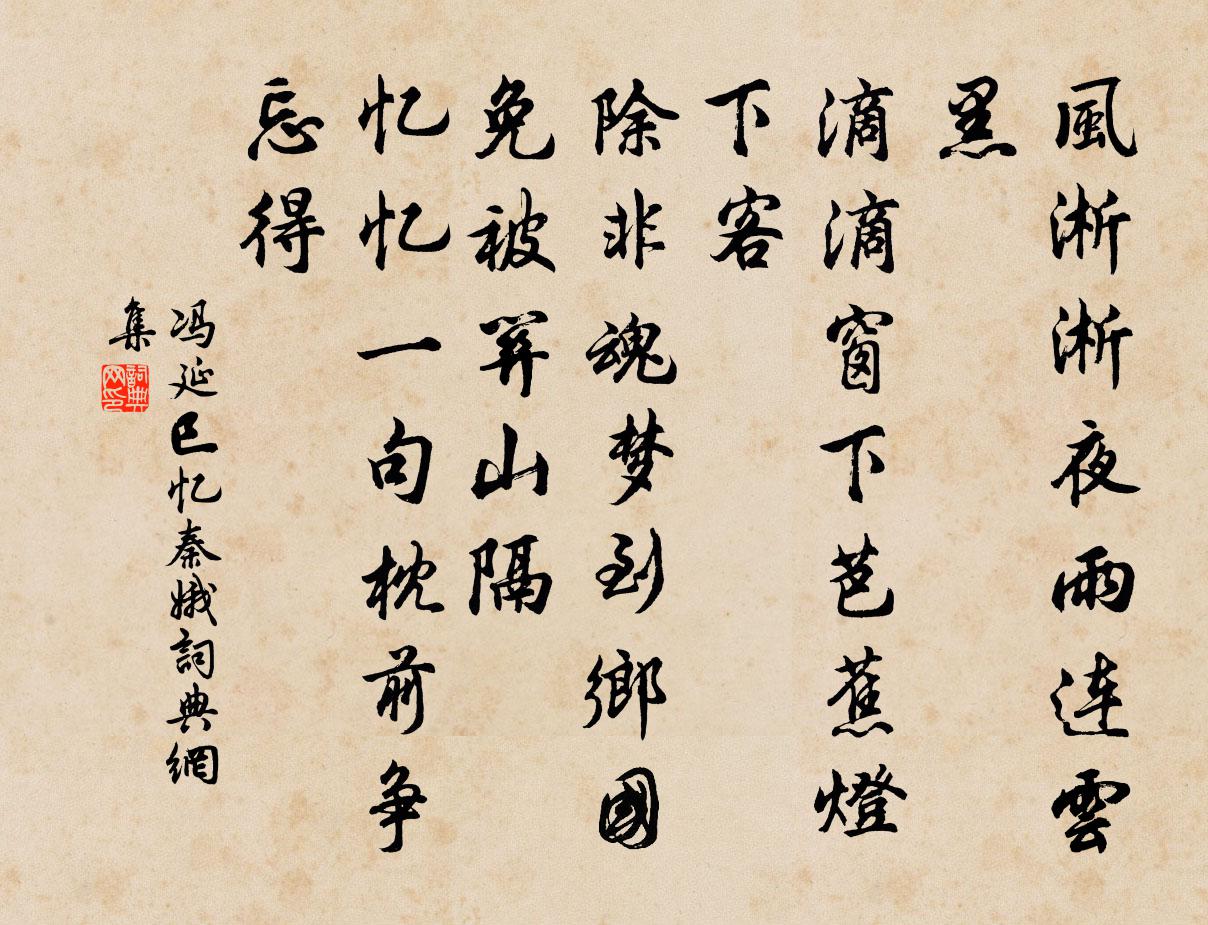 風淅淅夜雨连雲
黑
滴滴窗下芭蕉燈
下客
除非魂梦到鄉國
免被関山隔
忆忆一句枕前争
忘得
冯延巳忆秦娥詞典網
集
詞典网印